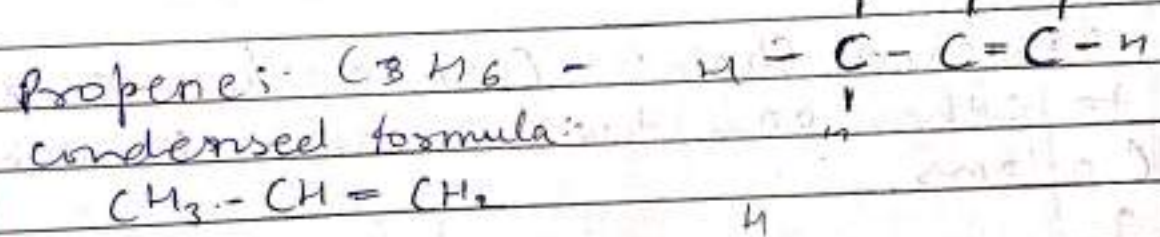 Propene:- C3H6 - H - C - C = C - H
H
condensed formula:-
CH3 - CH = CH2
H